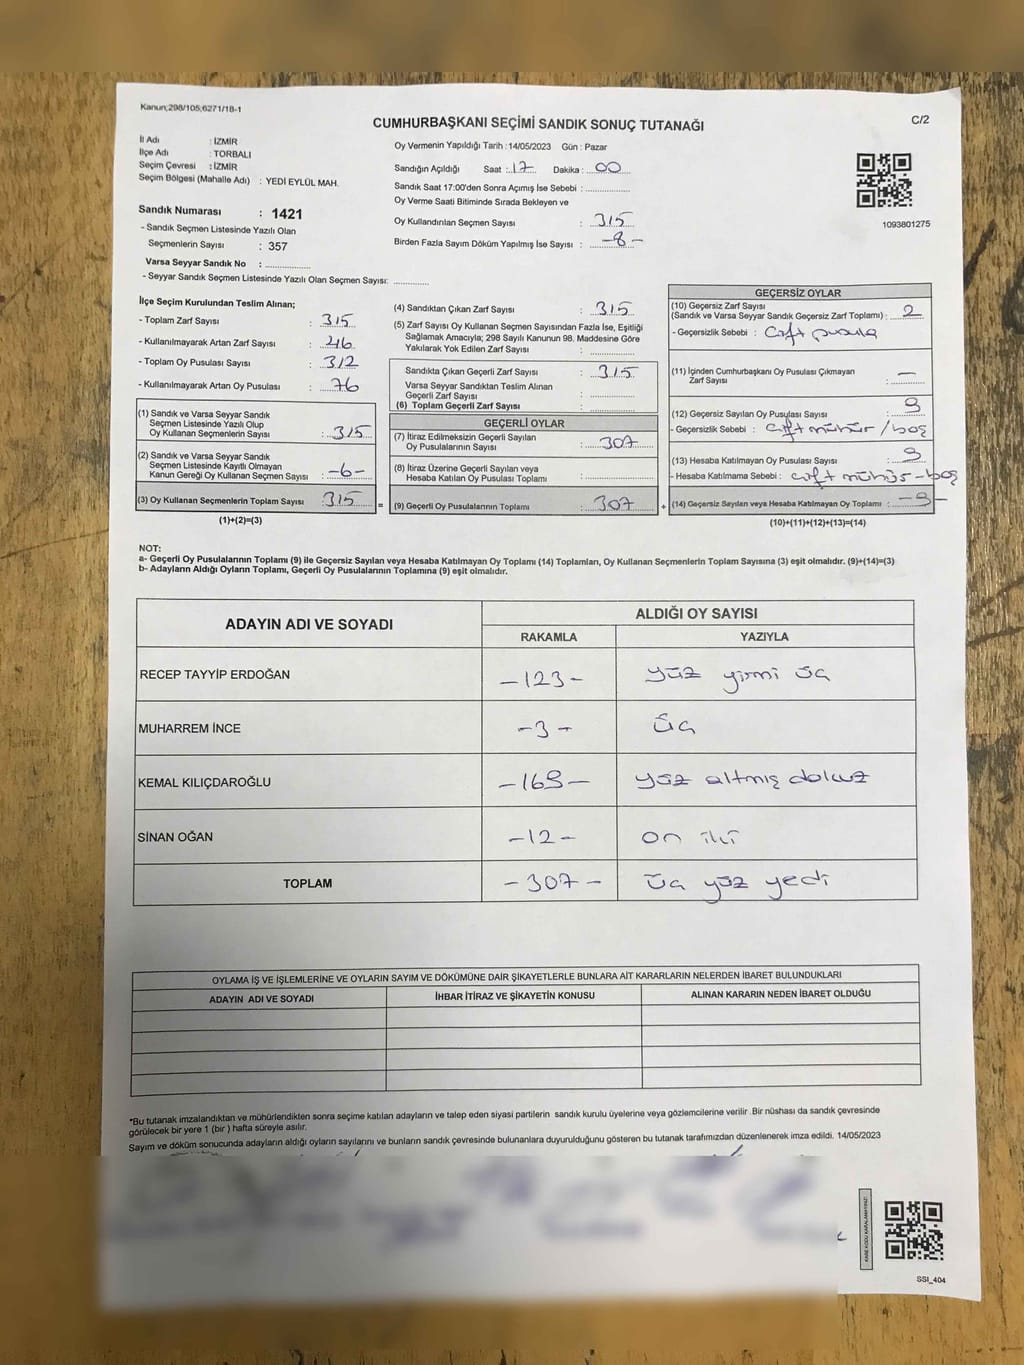 Kanun;298/105,6271/18-1
C/2
CUMHURBAŞKANI SEÇİMİ SANDIK SONUÇ TUTANAĞI
İl Adı : İZMİR
İlçe Adı : TORBALI
Seçim Çevresi : İZMİR
Seçim Bölgesi (Mahalle Adı) : YEDİ EYLÜL MAH.
Sandık Numarası : 1421
- Sandık Seçmen Listesinde Yazılı Olan
Seçmenlerin Sayısı : 357
Varsa Seyyar Sandık No : ..............
- Seyyar Sandık Seçmen Listesinde Yazılı Olan Seçmen Sayısı: ..............
Oy Vermenin Yapıldığı Tarih : 14/05/2023 Gün : Pazar
Sandığın Açıldığı Saat : 17 Dakika : 00
Sandık Saat 17:00'den Sonra Açımış İse Sebebi : ..............
Oy Verme Saati Bitiminde Sırada Bekleyen ve
Oy Kullandırılan Seçmen Sayısı : 315
Birden Fazla Sayım Döküm Yapılmış İse Sayısı : -8-
1093801275
İlçe Seçim Kurulundan Teslim Alınan;
- Toplam Zarf Sayısı : 315
- Kullanılmayarak Artan Zarf Sayısı : 46
- Toplam Oy Pusulası Sayısı : 312
- Kullanılmayarak Artan Oy Pusulası : 76
(1) Sandık ve Varsa Seyyar Sandık
Seçmen Listesinde Yazılı Olup
Oy Kullanan Seçmenlerin Sayısı : 315
(2) Sandık ve Varsa Seyyar Sandık
Seçmen Listesinde Kayıtlı Olmayan
Kanun Gereği Oy Kullanan Seçmen Sayısı : -6-
(3) Oy Kullanan Seçmenlerin Toplam Sayısı : 315 =
(1)+(2)=(3)
(4) Sandıktan Çıkan Zarf Sayısı : 315
(5) Zarf Sayısı Oy Kullanan Seçmen Sayısından Fazla İse, Eşitliği
Sağlamak Amacıyla; 298 Sayılı Kanunun 98. Maddesine Göre
Yakılarak Yok Edilen Zarf Sayısı : ..............
Sandıkta Çıkan Geçerli Zarf Sayısı : 315
Varsa Seyyar Sandıktan Teslim Alınan
Geçerli Zarf Sayısı : ..............
(6) Toplam Geçerli Zarf Sayısı : ..............
GEÇERLİ OYLAR
(7) İtiraz Edilmeksizin Geçerli Sayılan
Oy Pusulalarının Sayısı : 307
(8) İtiraz Üzerine Geçerli Sayılan veya
Hesaba Katılan Oy Pusulası Toplamı : ..............
(9) Geçerli Oy Pusulalarının Toplamı : 307 +
GEÇERSİZ OYLAR
(10) Geçersiz Zarf Sayısı
(Sandık ve Varsa Seyyar Sandık Geçersiz Zarf Toplamı) : 2
- Geçersizlik Sebebi : Çift pusula
(11) İçinden Cumhurbaşkanı Oy Pusulası Çıkmayan
Zarf Sayısı : —
(12) Geçersiz Sayılan Oy Pusulası Sayısı : 9
- Geçersizlik Sebebi : Çift mühür / boş
(13) Hesaba Katılmayan Oy Pusulası Sayısı : 9
- Hesaba Katılmama Sebebi : çift mühür - boş
(14) Geçersiz Sayılan veya Hesaba Katılmayan Oy Toplamı : -9-
(10)+(11)+(12)+(13)=(14)
NOT:
a- Geçerli Oy Pusulalarının Toplamı (9) ile Geçersiz Sayılan veya Hesaba Katılmayan Oy Toplamı (14) Toplamları, Oy Kullanan Seçmenlerin Toplam Sayısına (3) eşit olmalıdır. (9)+(14)=(3)
b- Adayların Aldığı Oyların Toplamı, Geçerli Oy Pusulalarının Toplamına (9) eşit olmalıdır.
ADAYIN ADI VE SOYADI ALDIĞI OY SAYISI
RAKAMLA YAZIYLA
RECEP TAYYİP ERDOĞAN -123- yüz yirmi üç
MUHARREM İNCE -3- üç
KEMAL KILIÇDAROĞLU -169- yüz altmış dokuz
SİNAN OĞAN -12- on iki
TOPLAM -307- üç yüz yedi
OYLAMA İŞ VE İŞLEMLERİNE VE OYLARIN SAYIM VE DÖKÜMÜNE DAİR ŞİKAYETLERLE BUNLARA AİT KARARLARIN NELERDEN İBARET BULUNDUKLARI
ADAYIN ADI VE SOYADI İHBAR İTİRAZ VE ŞİKAYETİN KONUSU ALINAN KARARIN NEDEN İBARET OLDUĞU
*Bu tutanak imzalandıktan ve mühürlendikten sonra seçime katılan adayların ve talep eden siyasi partilerin sandık kurulu üyelerine veya gözlemcilerine verilir .Bir nüshası da sandık çevresinde
görülecek bir yere 1 (bir ) hafta süreyle asılır.
Sayım ve döküm sonucunda adayların aldığı oyların sayılarını ve bunların sandık çevresinde bulunanlara duyurulduğunu gösteren bu tutanak tarafımızdan düzenlenerek imza edildi. 14/05/2023
SSI_404